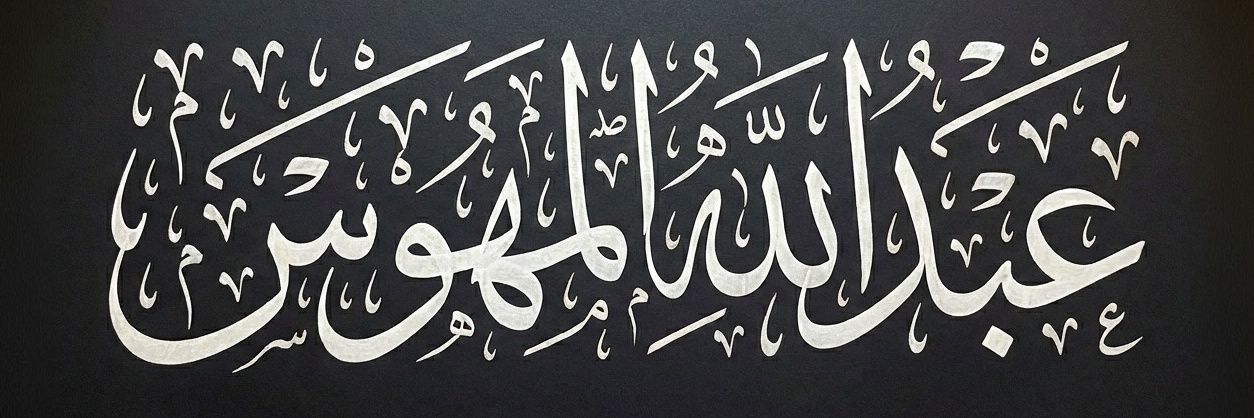 عَبْدُ اللَّهِ الْمُهَوَّسْ